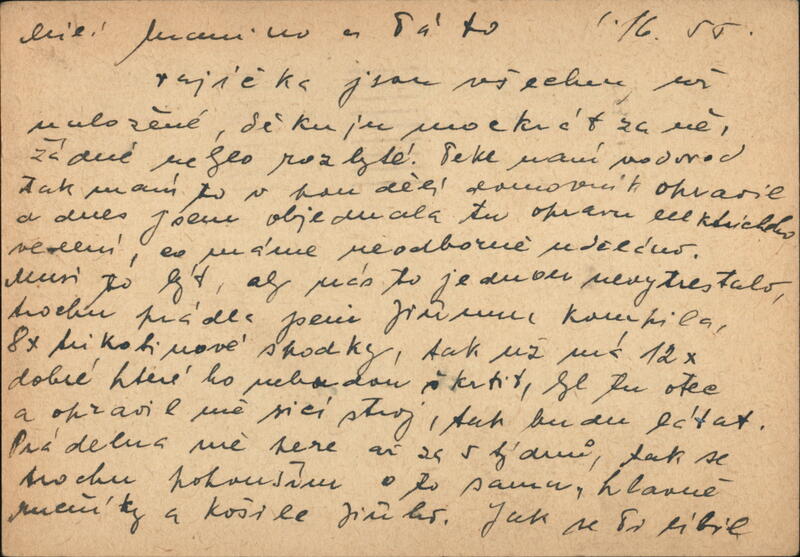 Milí Mamino a Táto 1./6. 55.
rajíčka jsou všechna už
naložené, děkuju mockrát za ně,
žádné nebylo rozbyté. Teklo nám vodovod
tak nám to v pondělí domovník opravil
a dnes jsem objednala tu opravu elektrického
vedení, co máme neodborně uděláno.
Musí to být, aby nás to jednou nevytrestalo,
trochu prádla jsem Jiřímu koupila,
8x trikotinové spodky, tak už má 12x
dobré které ho nebudou škrtit, byl tu otec
a opravil mě šicí stroj, tak budu látat.
Prádelna mě pere až za 5 týdnů, tak se
trochu pokouším o to sama, hlavně
ručníky a košile Jiřího. Jak se Ti líbil